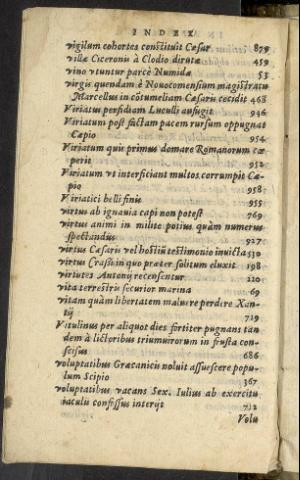 INDEX
vigilum cohortes constituit Cæsar 879
villæ Ciceronis à Clodio dirutæ 459
vino vtuntur parcè Numidæ 53
virgis quendam è Nouocomensium magistratu
Marcellus in cõtumeliam Cæsaris cecidit 468
Viriatus perfidiam Luculli aufugit 946
Viriatum post factam pacem rursum oppugnat
Cæpio 954
Viriatum quis primus domare Romanorum cœ
perit 952
Viriatum vt interficiant multos corrumpit Cæ-
pio 958
Viriatici belli finis 955
virtus ab ignauia capi non potest 769
virtus animi in milite potius quàm numerus
spectandus 927
virtus Cæsaris vel hostiũ testimonio inuicta 530
virtus Crassi in quo præter solitum eluxit 198
virtutes Antonij recensentur 220
vita terrestris securior marina 69
vitam quàm libertatem maluere perdere Xan-
tij 729
Vitulinus per aliquot dies fortiter pugnans tan
dem à lictoribus triumuirorum in frusta con-
scisus 686
voluptatibus Græcanicis noluit assuescere popu-
lum Scipio 367
voluptatibus vacans Sex. Iulius ab exercitu
iaculis confissus interijt 732
Volu